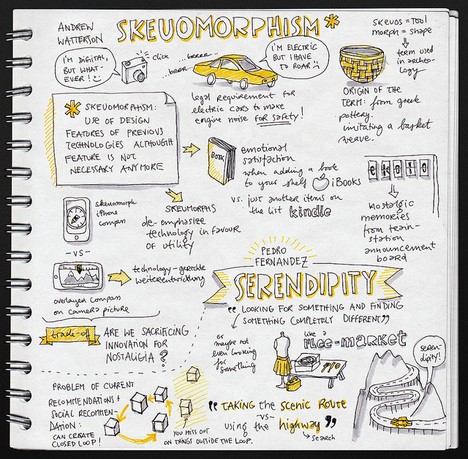 ANDREW
WATTERTON
SKEUOMORPHISM*
SKEUOS = TOOL
morph = shape
term used
in archeo-
logy
I'M DIGITAL,
BUT WHAT-
EVER!
click
..brrrr..
...brrrr
I'M ELECTRIC
BUT I HAVE
TO ROAR
legal requirement for
electric cars to make
engine noise FOR safety!
ORIGIN OF THE
TERM: from greek
pottery.
imitating a basket
weave.
* SKEUOMORPHISM:
USE OF DESIGN
FEATURES OF PREVIOUS
TECHNOLOGIES ALTHOUGH
FEATURE IS NOT
NECESSARY ANYMORE
BOOK
emotional
satisfaction
when adding a book
to your shelf iBooks
vs. just another items on
the list kindle
nostalgic
memories
from train-
station
announcement
board
skeuomorph
iPhone
compass
SKEUOMORPHS
de-emphasize
technology in favour
of utility
-VS-
overlayed compass
on camera picture
technology-gerechte
weiterentwicklung
PEDRO
FERNANDEZ
SERENDIPITY
"LOOKING FOR SOMETHING AND FINDING
SOMETHING COMPLETELY DIFFERENT"
trade-off
ARE WE SACRIFICING
INNOVATION FOR
NOSTALGIA?
or
maybe not
even looking
for
something
like a
flee-market
seren-
dipity!
PROBLEM OF CURRENT
RECOMMENDATIONS +
SOCIAL RECOMMEN-
DATION:
CAN CREATE
CLOSED LOOP!
YOU MISS OUT
ON THINGS OUTSIDE THE LOOP.
"TAKING the SCENIC ROUTE
-VS-
using the highway"
search